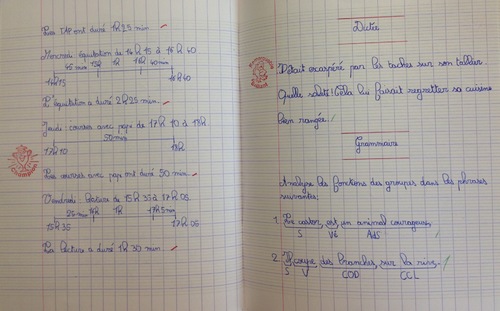 Les TAP ont duré 1h25 min.
Mercredi équitation de 14h15 à 16h40
45 min 15h 1h 16h 40min
14h15 16h40
L'équitation a duré 2h25 min.
Jeudi courses avec papa de 17h10 à 18h
50 min
17h10 18h
Les courses avec papi ont duré 50 min.
Vendredi lecture de 15h35 à 17h05
25 min 16h 1h 17h 5min
15h35 17h05
La lecture a duré 1h30 min
Dictée
Il était exaspéré par les taches sur son tablier.
Quelle saleté! Cela lui faisait regretter sa cuisine
bien rangée.
Grammaire
Analyse les fonctions des groupes dans les phrases
suivantes:
1. Le castor est un animal courageux.
S VE AdS
2. Il coupe des branches sur la rive.
S V COD CCL